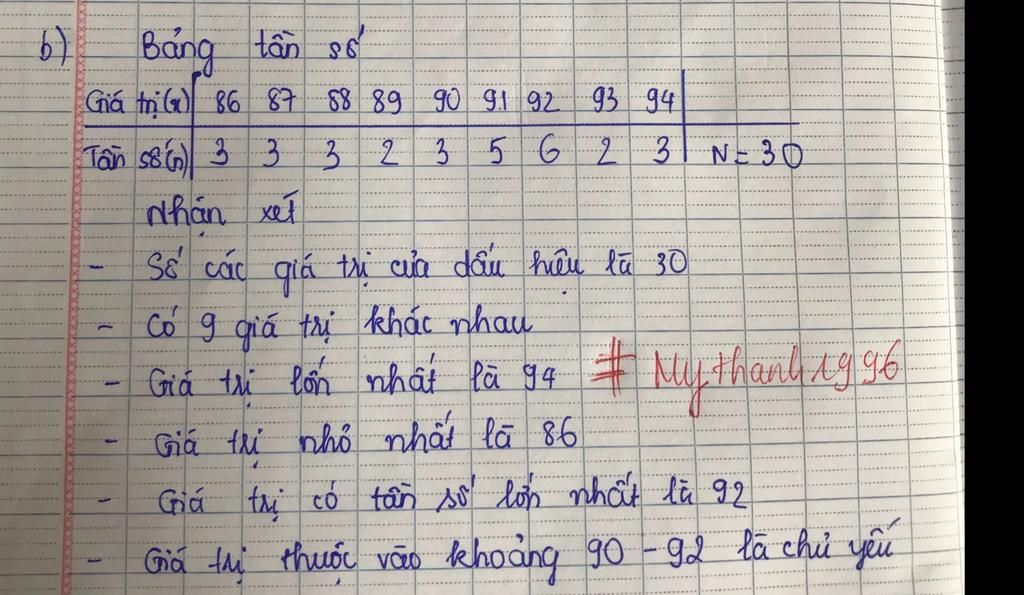 b) Bảng tần số
Giá trị (x) 86 87 88 89 90 91 92 93 94
Tần số (n) 3 3 3 2 3 5 6 2 3 N = 30
Nhận xét
- Số các giá trị của dấu hiệu là 30
- Có 9 giá trị khác nhau
- Giá trị lớn nhất là 94 # Mythanh1996
- Giá trị nhỏ nhất là 86
- Giá trị có tần số lớn nhất là 92
- Giá trị thuộc vào khoảng 90 - 92 là chủ yếu